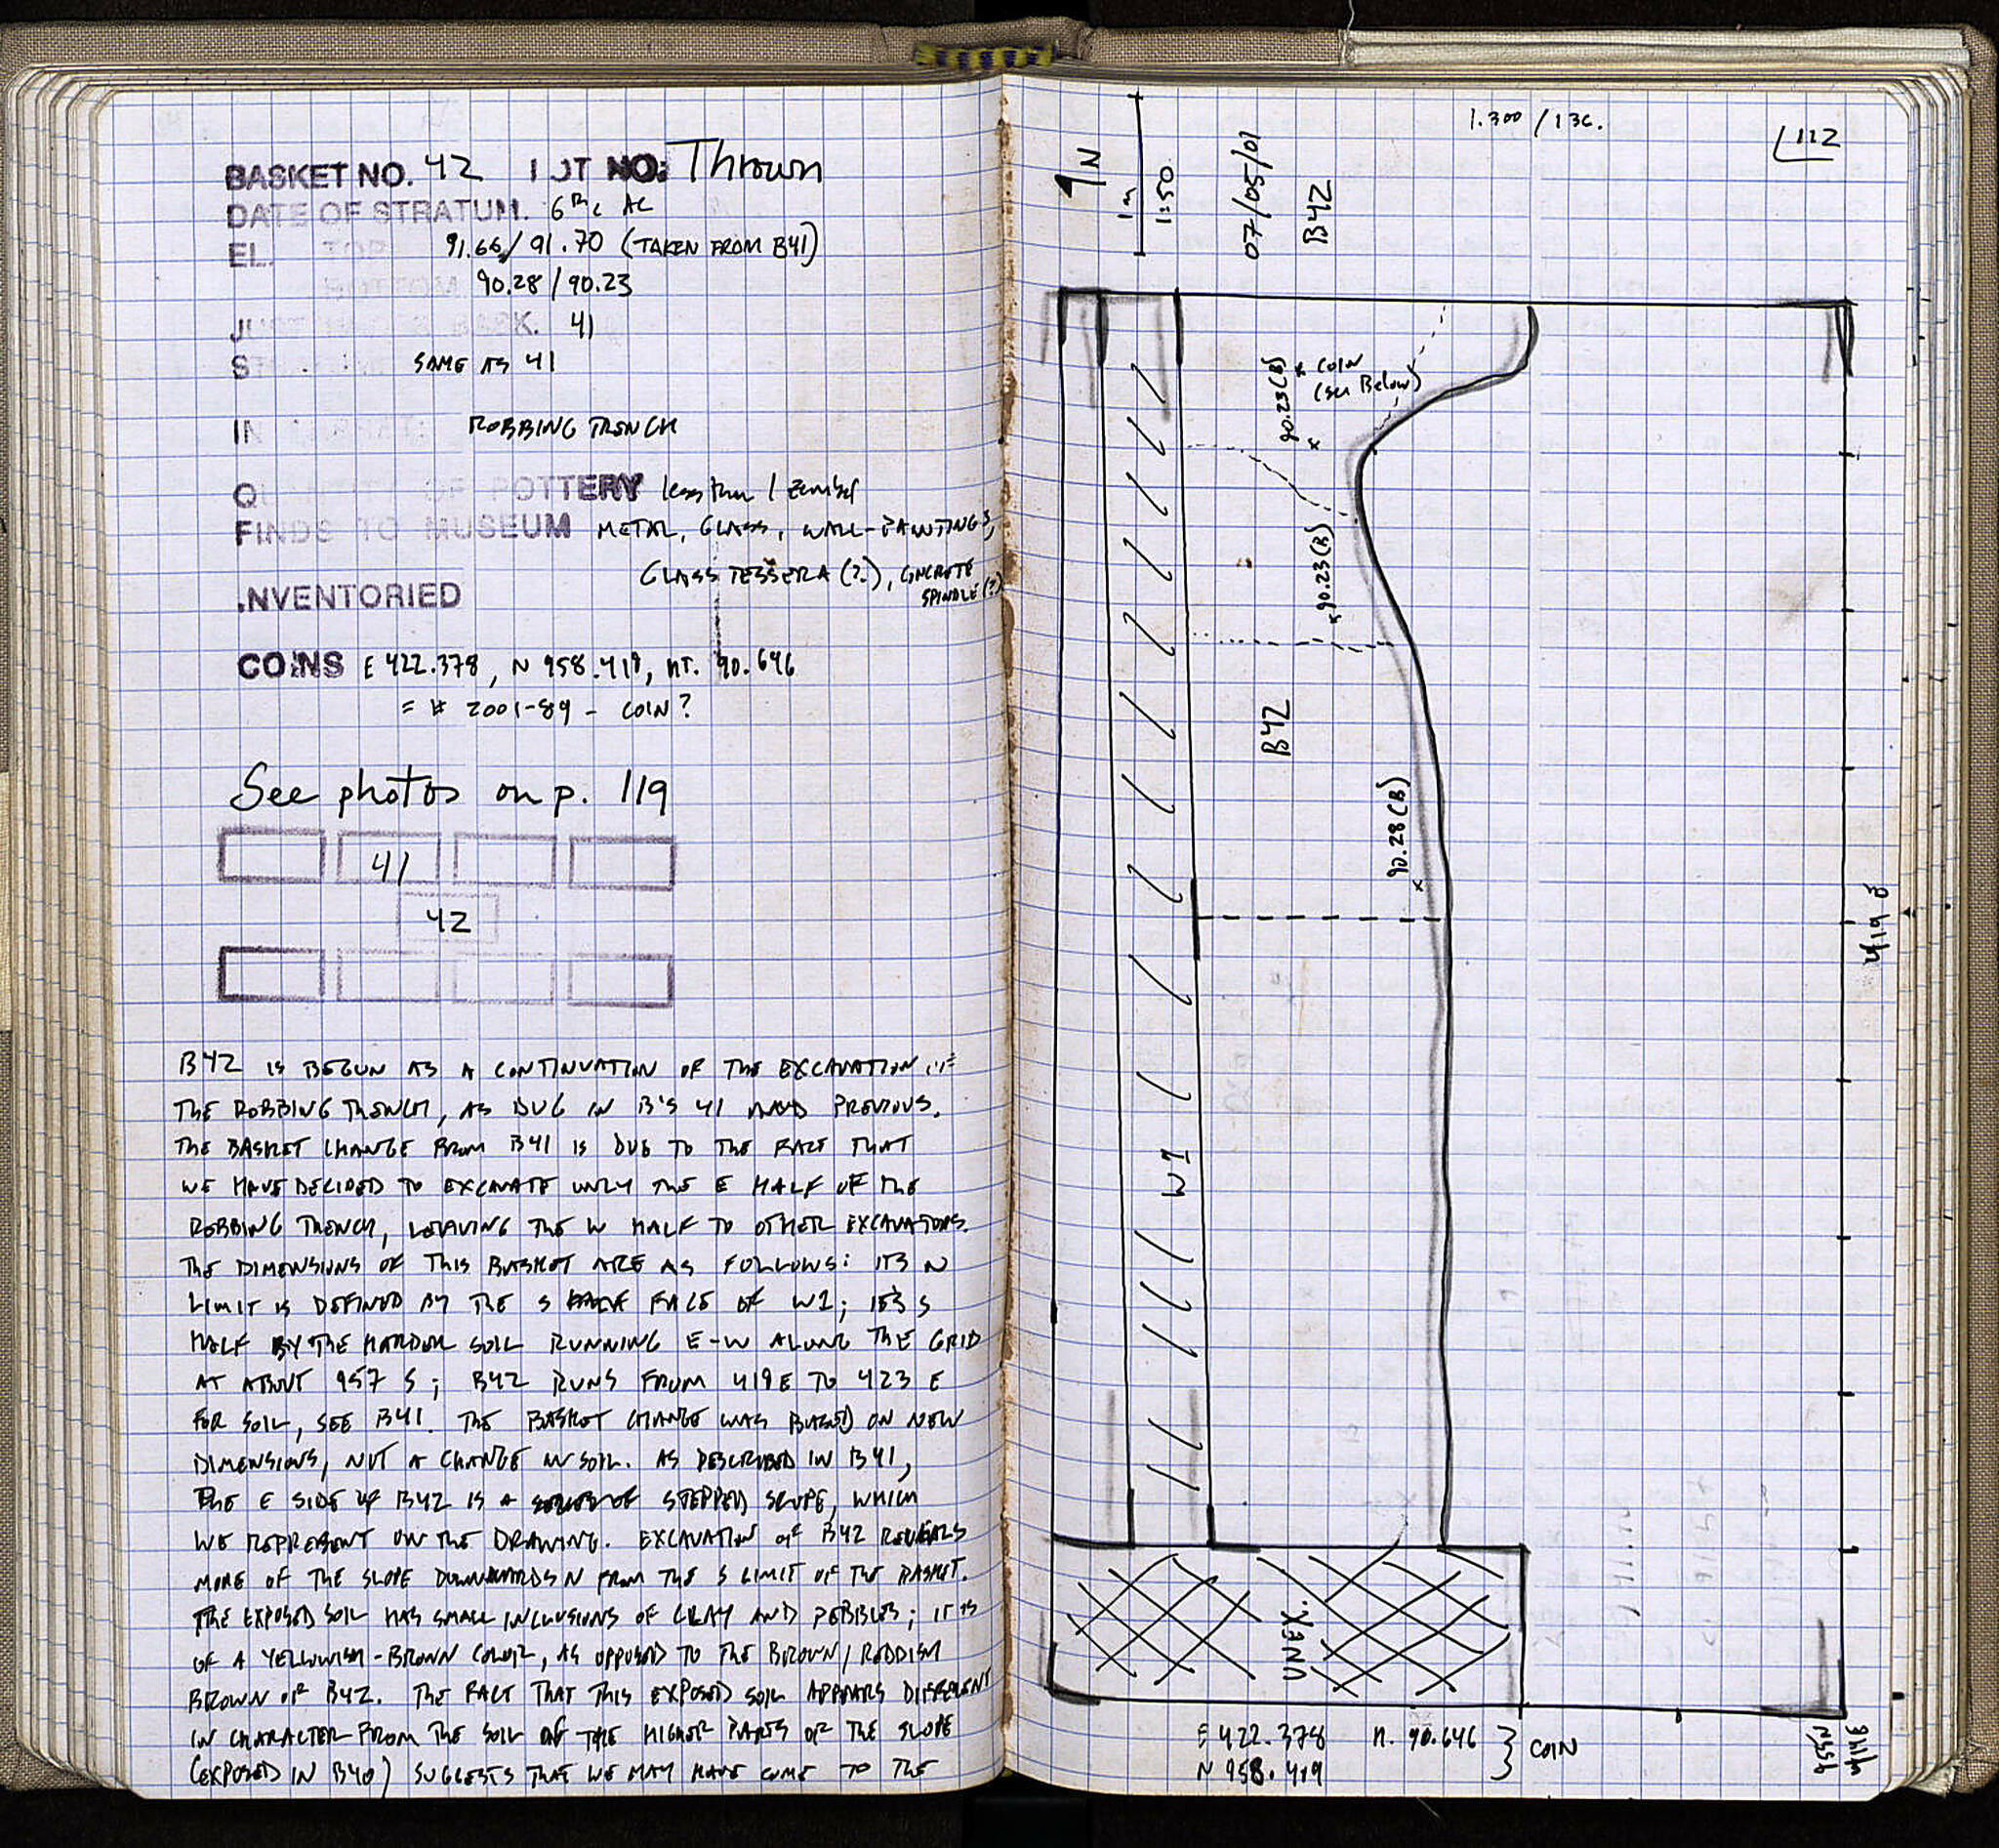 BASKET NO. 42 LOT NO: Thrown
DATE OF STRATUM. 6th c AC
EL. TOP 91.66/91.70 (TAKEN FROM B41)
BOTTOM 90.28/90.23
BASK. 41
SAME AS 41
IN ROBBING TRENCH
QUANTITY OF POTTERY less than 1 zembil
FINDS TO MUSEUM METAL, GLASS, WALL-PAINTINGS,
GLASS TESSERA (?), CONCRETE
SPINDLE (?)
INVENTORIED
COINS E 422.378, N 958.419, HT. 90.646
= # 2001-89 - COIN?
See photos on p. 119
41
42
B42 IS BEGUN AS A CONTINUATION OF THE EXCAVATION OF
THE ROBBING TRENCH, AS DUG IN B'S 41 AND PREVIOUS.
THE BASKET CHANGE FROM B41 IS DUE TO THE FACT THAT
WE HAVE DECIDED TO EXCAVATE ONLY THE E HALF OF THE
ROBBING TRENCH, LEAVING THE W HALF TO OTHER EXCAVATORS.
THE DIMENSIONS OF THIS BASKET ARE AS FOLLOWS: ITS N
LIMIT IS DEFINED BY THE S FACE OF W1; ITS S
HALF BY THE HARDER SOIL RUNNING E-W ALONG THE GRID
AT ABOUT 957 S; B42 RUNS FROM 419 E TO 423 E
FOR SOIL, SEE B41. THE BASKET CHANGE WAS BASED ON NEW
DIMENSIONS, NOT A CHANGE IN SOIL. AS DESCRIBED IN B41,
THE E SIDE OF B42 IS A STEPPED SLOPE, WHICH
WE REPRESENT ON THE DRAWING. EXCAVATION OF B42 REVEALS
MORE OF THE SLOPE DOWNWARDS N FROM THE S LIMIT OF THE BASKET.
THE EXPOSED SOIL HAS SMALL INCLUSIONS OF CLAY AND PEBBLES; IT IS
OF A YELLOWISH-BROWN COLOR, AS OPPOSED TO THE BROWN/REDDISH
BROWN OF B42. THE FACT THAT THIS EXPOSED SOIL APPEARS DIFFERENT
IN CHARACTER FROM THE SOIL OF THE HIGHER PARTS OF THE SLOPE
(EXPOSED IN B40) SUGGESTS THAT WE MAY HAVE COME TO THE
112
1.300 / 136.
N
1m
1:50
07/05/01
B42
COIN
(see Below)
90.23(B)
90.23(B)
B42
90.28(B)
419 E
W1
UNEX.
E 422.378 H. 90.646 } COIN
N 958.419